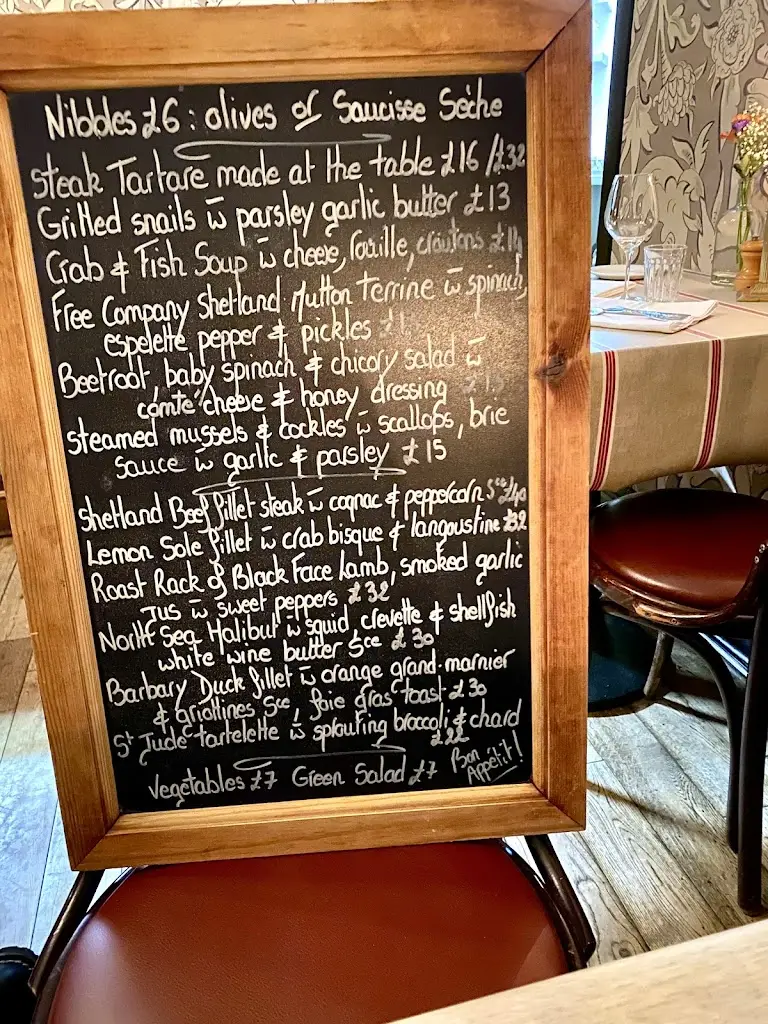 Nibbles £6 : olives or Saucisse Sèche
Steak Tartare made at the table £16 /£32
Grilled snails w̄ parsley garlic butter £13
Crab & Fish Soup w̄ cheese, rouille, croutons £14
Free Company Shetland Mutton Terrine w̄ spinach,
espelette pepper & pickles £
Beetroot, baby spinach & chicory salad w̄
comté cheese & honey dressing
Steamed mussels & cockles w̄ scallops, brie
sauce w̄ garlic & parsley £15
Shetland Beef fillet steak w̄ cognac & peppercorn sce £40
Lemon Sole fillet w̄ crab bisque & langoustine £32
Roast Rack of Black Face Lamb, smoked garlic
Jus w̄ sweet peppers £32
North Sea Halibut w̄ squid, crevette & shellfish
white wine butter sce £30
Barbary Duck fillet w̄ orange grand-marnier
& griottines sce, foie gras toast £30
St Jude tartelette w̄ sprouting broccoli & chard
£22
Vegetables £7 Green Salad £7 Bon
Appétit!